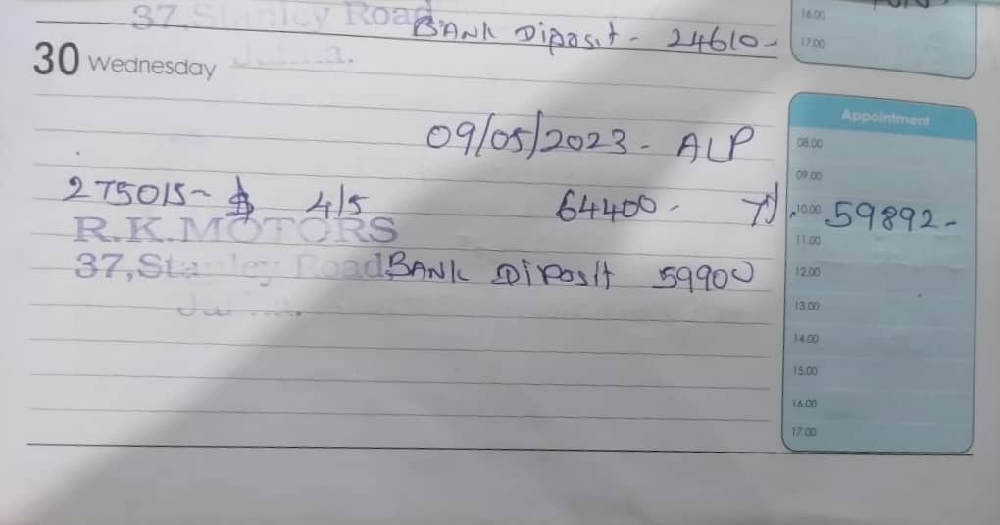 37, Stanley Road BANK Diposit - 24610-
16.00
17.00
30 Wednesday
Appointment
09/05/2023 - ALP
08.00
09.00
275015- 4/5 64400 - 10.00 59892-
R.K.MOTORS
11.00
37, Stanley Road BANK Diposit 59900
12.00
13.00
14.00
15.00
16.00
17.00